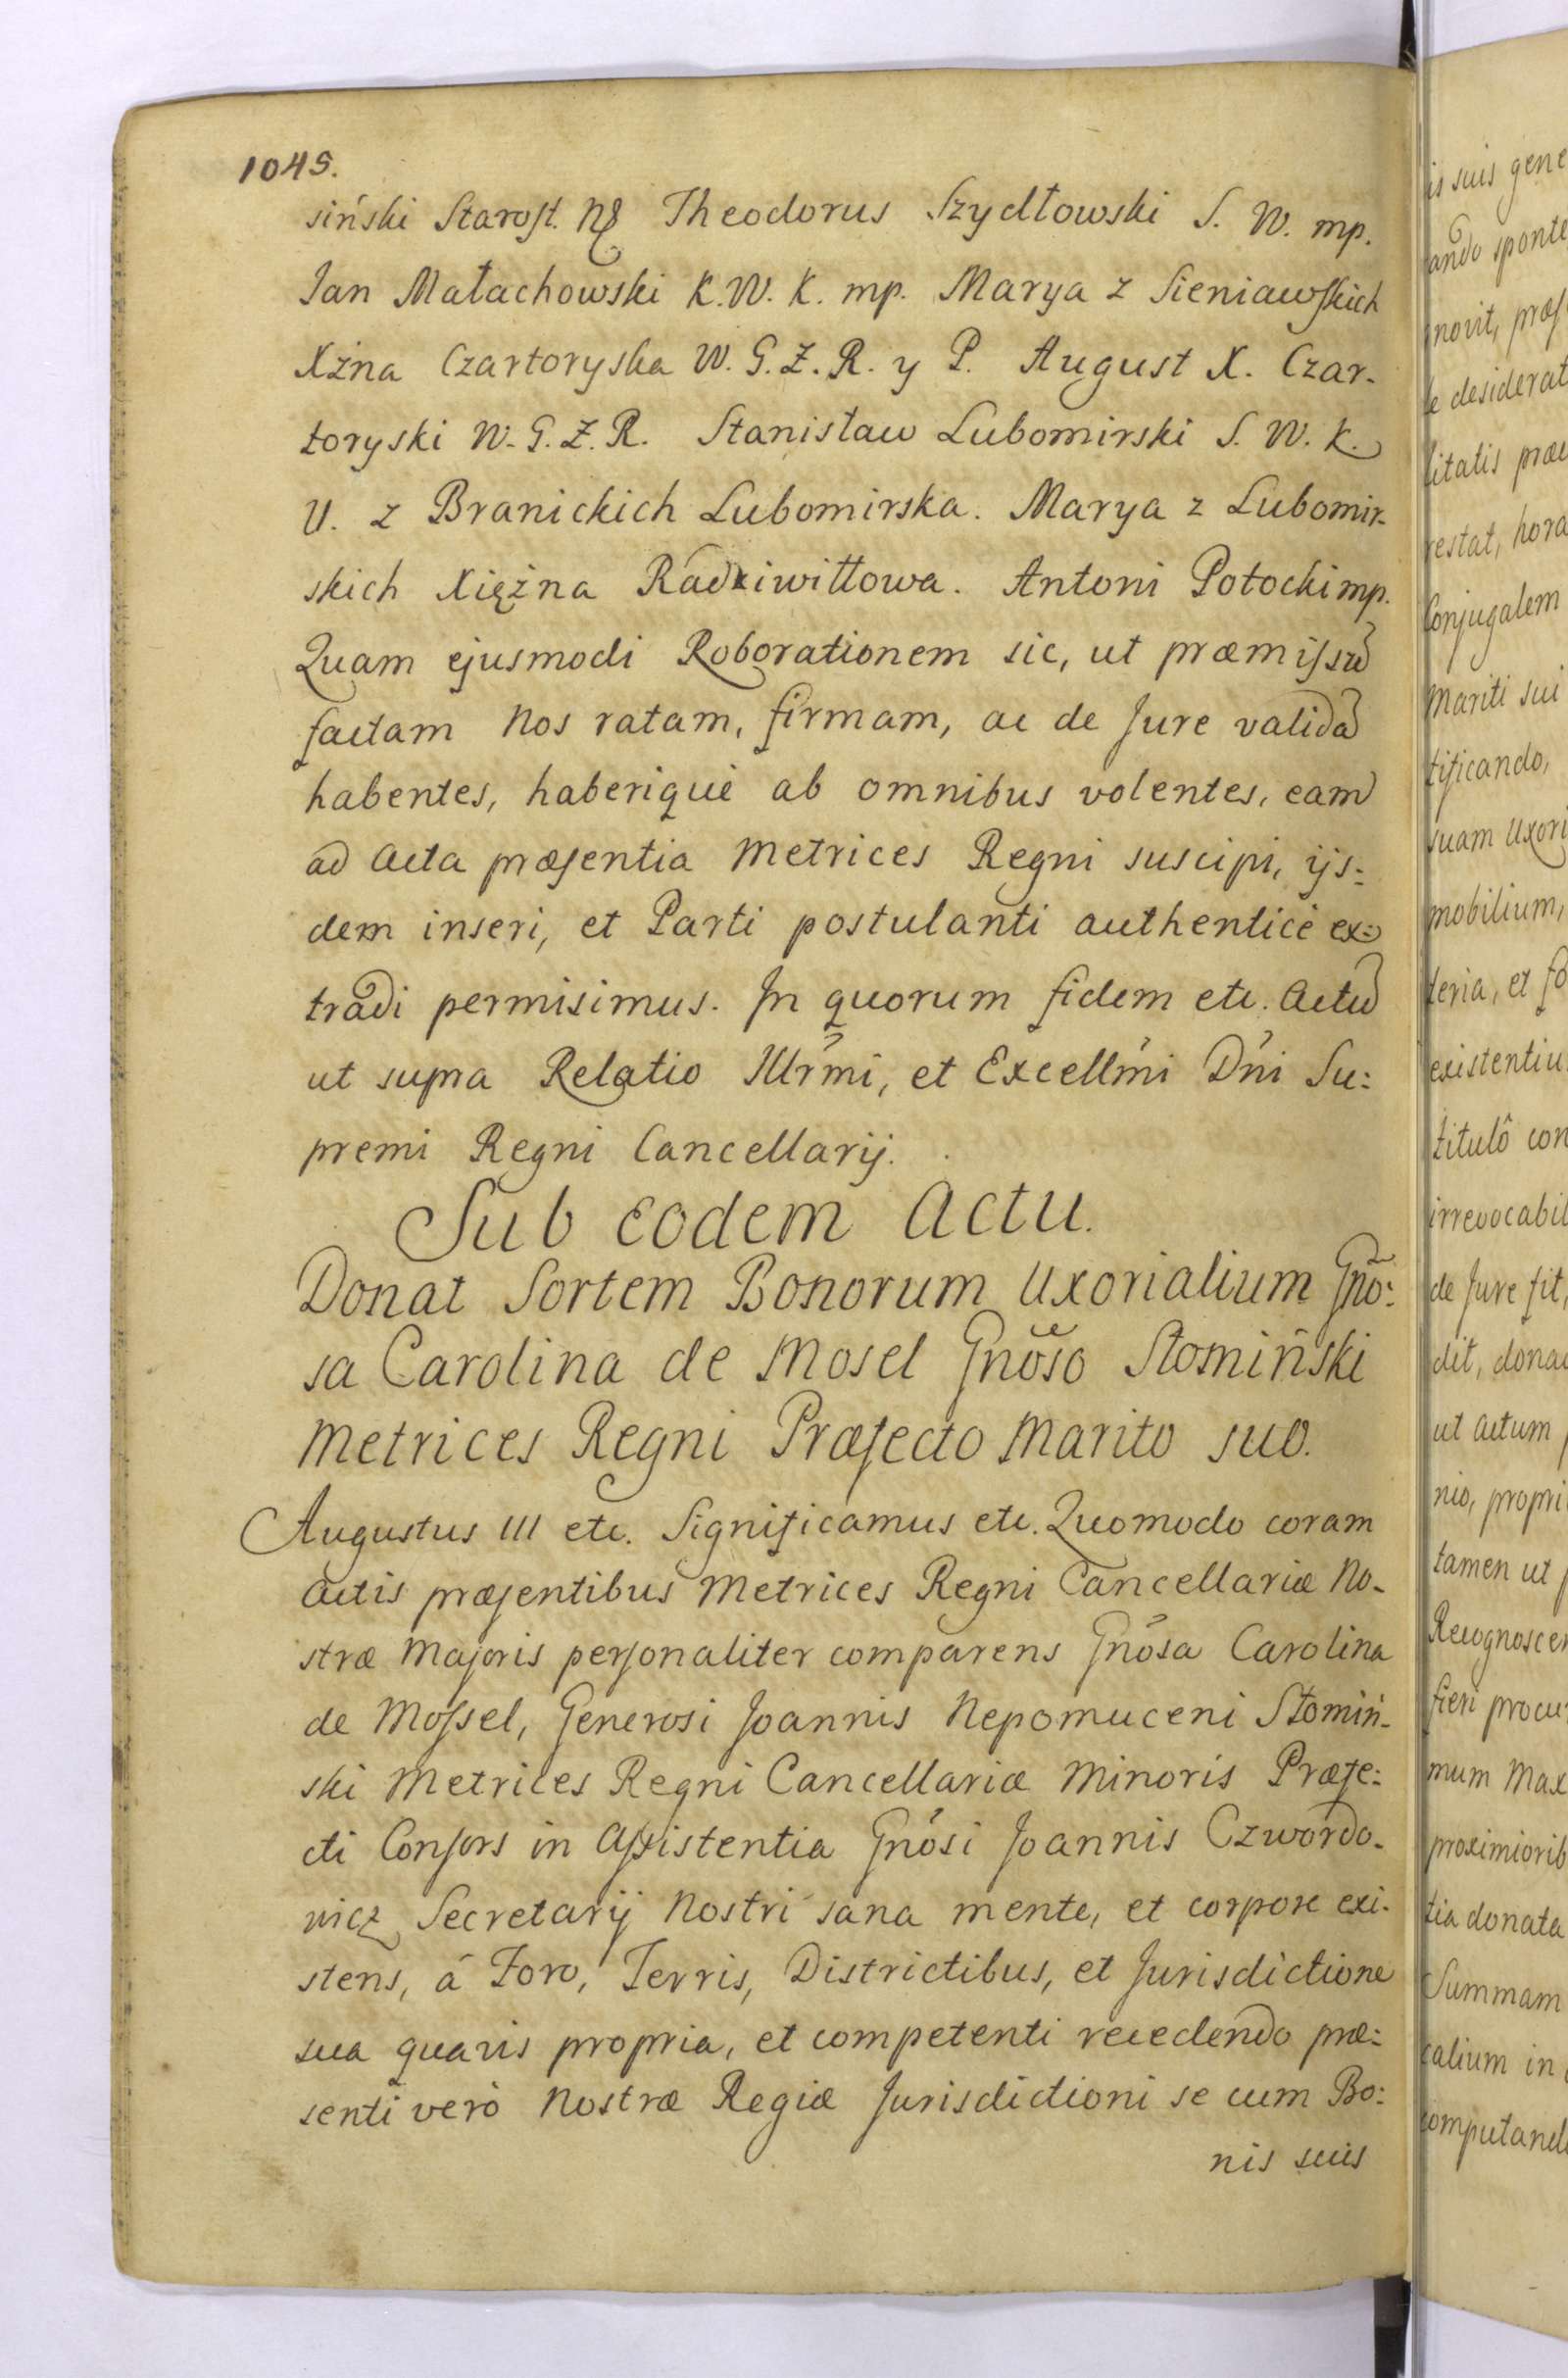 1045.
siński Starost. N§ Theodorus Szydłowski S. W. mp.
Jan Małachowski K. W. K. mp. Marya z Sieniawskich
Xżna Czartoryska W. G. Z. R. y P. August X. Czar-
toryski W. G. Z. R. Stanisław Lubomirski S. W. K.
U. z Branickich Lubomirska. Marya z Lubomir-
skich Xiężna Radziwiłłowa. Antoni Potocki mp.
Quam ejusmodi Roborationem sic, ut præmissũ
factam Nos ratam, firmam, ac de Jure validã
habentes, haberiquè ab omnibus volentes, eam
ad Acta præsentia Metrices Regni suscipi, ijs:
dem inseri, et Parti postulanti authenticè ex:
tradi permisimus. In quorum fidem etc. Actũ
ut supra Relatio Illr̃mi, et Excellm̃i Dñi Su:
premi Regni Cancellarij.
Sub eodem Actu.
Donat Sortem Bonorum Uxorialium Gño:
sa Carolina de Mosel Gñoso Słomiński
Metrices Regni Præfecto Marito suo.
Augustus III etc. Significamus etc. Quomodo coram
Actis præsentibus Metrices Regni Cancellariæ No-
stræ Majoris personaliter comparens Gñosa Carolina
de Mossel, Generosi Joannis Nepomuceni Słomiń-
ski Metrices Regni Cancellariæ Minoris Præfe:
cti Consors in Assistentia Gñosi Joannis Czwordo-
wicz Secretarij Nostri sana mente, et corpore exi-
stens, á Foro, Terris, Districtibus, et Jurisdictione
sua quavis propria, et competenti recedendo præ:
senti verò Nostræ Regiæ Jurisdictioni se cum Bo:
nis suis
is suis gene
ando sponte
gnovit, præs
le desiderat
litatis præ
restat, hora
Conjugalem
Mariti sui
tificando,
suam Uxori
mobilium,
teria, et fo
existentiu
titulô con
irrevocabil
de Jure fit,
dit, dona
ut Actum
nio, propri
tamen ut
Recognoscen
fieri procu
mum Max
proximiorib
tia donata
Summam
calium in
computand